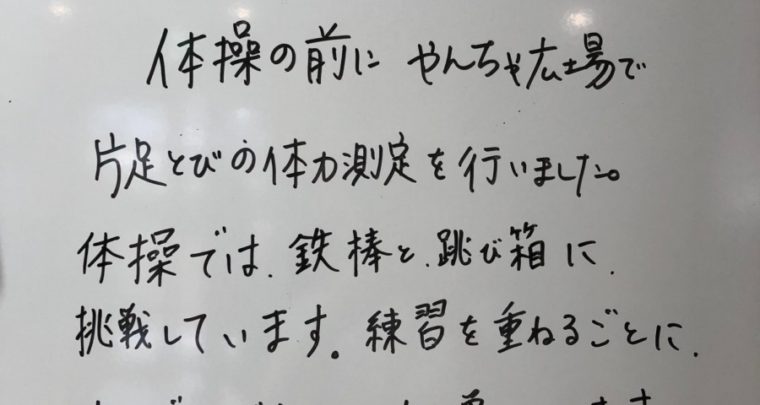 体操の前に やんちゃ広場で
片足とびの体力測定を行いました。
体操では、鉄棒と、跳び箱に、
挑戦しています。練習を重ねるごとに、